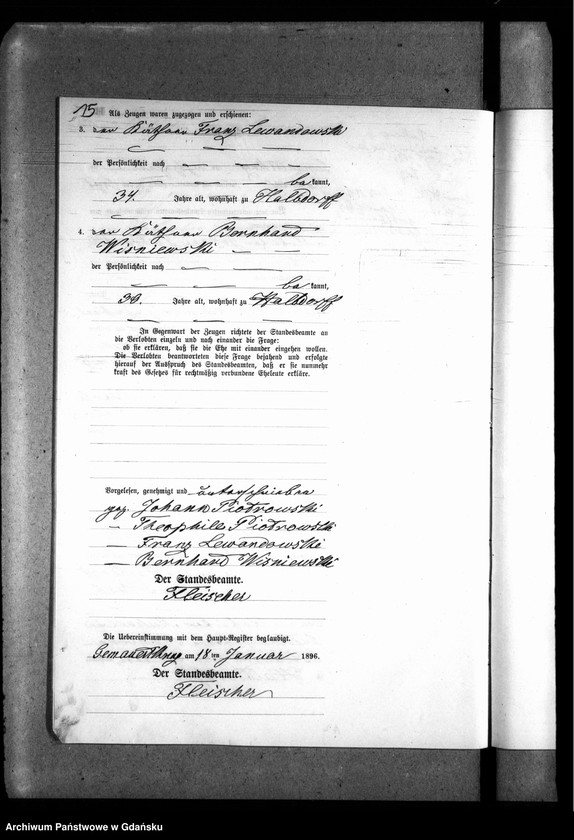 15 Als Zeugen waren zugezogen und erschienen:
3. der Käthner Franz Lewandowski
der Persönlichkeit nach
be kannt,
34. Jahre alt, wohnhaft zu Halbdorff
4. der Käthner Bernhard
Wisniewski
der Persönlichkeit nach
be kannt,
Jahre alt, wohnhaft zu Halbdorff
In Gegenwart der Zeugen richtete der Standesbeamte an
die Verlobten einzeln und nach einander die Frage:
ob sie erklären, daß sie die Ehe mit einander eingehen wollen.
Die Verlobten beantworteten diese Frage bejahend und erfolgte
hierauf der Ausspruch des Standesbeamten, daß er sie nunmehr
kraft des Gesetzes für rechtmäßig verbundene Eheleute erkläre.
Vorgelesen, genehmigt und unterschrieben
gez. Johann Piotrowski
Theophile Piotrowski
Franz Lewandowski
Bernhard Wisniewski
Der Standesbeamte.
Fleischer
Die Uebereinstimmung mit dem Haupt-Register beglaubigt.
am 18 ten Januar 1896.
Der Standesbeamte.
Fleischer
Archiwum Państwowe w Gdańsku